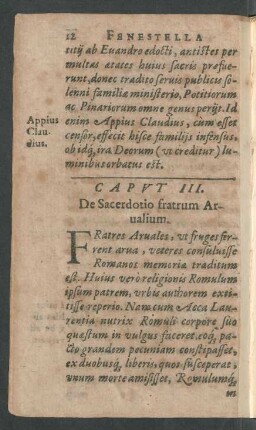 12 FENESTELLA
titij ab Euandro edocti, antistes per
multas ætates huius sacris præfue-
runt, donec tradito seruis publicis so-
lenni familiæ ministerio, Potitiorum
ac Pinariorum omne genus perijt. Id
enim Appius Claudius, cum esset
Appius
Clau-
dius.
censor, effecit hisce familijs infensus,
ob idq́, ira Deorum (vt creditur) lu-
minibus orbatus est.
CAPVT III.
De Sacerdotio fratrum Ar-
ualium.
FRatres Aruales, vt fruges fer-
rent arua, veteres consuluisse
Romanos memoriæ traditum
est. Huius verò religionis Romulum
ipsum patrem, vrbis authorem exsi-
tisse reperio. Nam cum Acca Lau-
rentia nutrix Romuli corpore suo
quæstum in vulgus faceret, eoq́, pa-
cto grandem pecuniam constipasset,
ex duobusq́, liberis, quos susceperat,
vnum morte amisisset, Romulumq́,